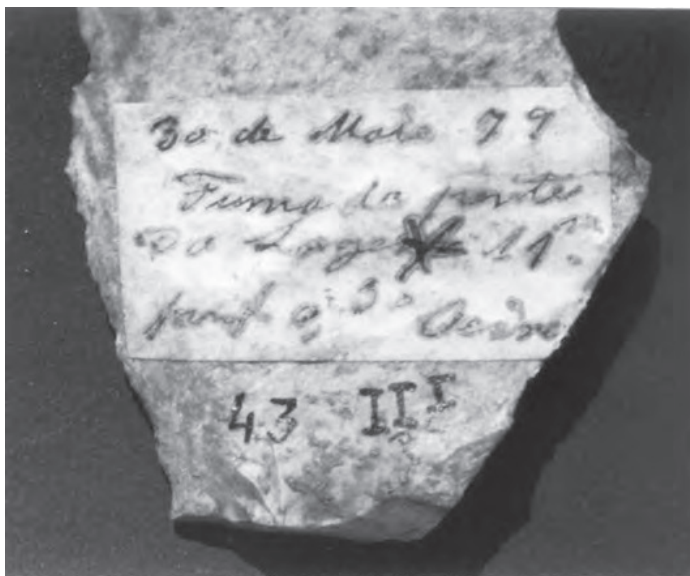 30 de Maio 79
Furna da ponte
Da Lage 11
prof. 0,30 Oeiras
43 III